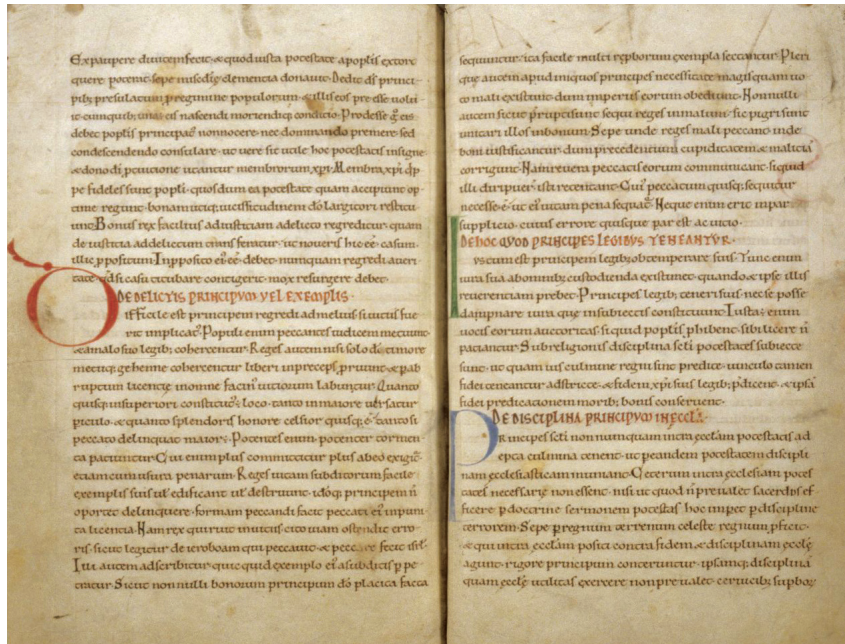 Ex paupere diuitem fecit & quod iusta potestate a poplis extor
quere poterit sepe clementia donauit. Dedit ds princi
pib; presulatum p regimine populorum & illis eos pre esse uolu
it cum quib; una e eis nascendi moriendiq; condicio. Prodesse g eis
debet poplis principat non nocere nec dominando premere sed
condescendendo consulare ut uere sit utile hoc potestatis insigne
& dono di p tuicione utantur membrorum xpi. Membra xpi qp
pe fideles sunt popli quos dum ea potestate quam accipiunt op
time regunt bonam utiq; uicissitudinem do largitori restitu
unt. Bonus rex facilius ad iustitiam a delicto regreditur quam
de iustitia ad delictum transferatur ut noueris hic ee casum
illic ppositum. In pposito ei ee debet nunquam regredi a ueri
tate qd si casu titubare contigerit mox resurgere debet.
DE DELICTIS PRINCIPVM VEL EXEMPLIS
Difficile est principem regredi ad melius si uiciis fue
rit implicat. Populi enim peccantes iudicem metuunt
& a malo suo legib; cohercentur. Reges autem nisi solo di timore
metuq; gehenne cohercentur liberi in preceps pruunt & p ab
ruptum licentie in omne facin uitiorum labuntur. Quanto
quisq; in superiori constitut loco tanto in maiore uersatur
piculo & quanto splendoris honore celsior quisq; e tanto si
peccato delinquat maior e. Potentes enim potenter tormen
ta patiuntur. Cui enim plus committitur plus ab eo exigit
etiam cum usura penarum. Reges uitam subditorum facile
exemplis suis uel edificant uel destruunt idoq; principem n
oportet delinquere ne formam peccandi faciat peccati ei impuni
ta licentia. Nam rex qui ruit in uitiis cito uiam ostendit erro
ris sicut legitur de ieroboam qui peccauit & peccare fecit isrl
Illi autem adscribitur quicquid exemplo ei a subditis p pe
tratur. Sicut nonnulli bonorum principum do placita facta
sequuntur ita facile multi reproborum exempla sectantur. Pleri
que autem apud iniquos principes necessitate magis quam uo
to mali existunt dum imperiis eorum obediunt. Nonnulli
autem sicut prupti sunt sequi reges in malum sic pigri sunt
imitari illos in bonum. Sepe unde reges mali peccant inde
boni iustificantur dum precedentium cupiditatem & malicia
corrigunt. Nam reuera peccatis eorum communicant si quid
illi diripuer isti retentant. Cui peccatum quisq; sequitur
necesse e ut ei uitam pena sequat. Neque enim erit impar
supplicio cuius errore quisque par est ac uicio.
DE HOC QVOD PRINCIPES LEGIBVS TENEANTVR.
Iustum est principem legib; obtemperare suis. Tunc enim
iura sua ab omnib; custodienda existimet quando & ipse illis
reuerentiam prebet. Principes legib; teneri suis nec se posse
dampnare iura que in subiectis constituunt. Iusta e enim
uocis eorum auctoritas si quid poplis phibent sibi licere n
patiantur. Sub religionis disciplina scli potestates subiecte
sunt ut quam uis culmine regni sint predite uinculo tamen
fidei teneantur adstricte & fidem xpi suis legib; pdicent & ipsa
fidei predicationem morib; bonis conseruent.
DE DISCIPLINA PRINCIPVM IN ECCLA.
Principes scli non numquam intra ecclam potestatis ad
epta culmina tenent ut p eandem potestatem discipli
nam ecclesiasticam muniant. Ceterum intra ecclesiam potes
tates necessarie non essent nisi ut quod n preualet sacerdos ef
ficere p doctrine sermonem potestas hoc impet p discipline
terrorem. Sepe p regnum terrenum celeste regnum pficit
& qui intra ecclam positi contra fidem & disciplinam eccle
agunt rigore principum conteruntur ipsamq; disciplina
quam eccle utilitas exercere non preualet ceruicib; supbor